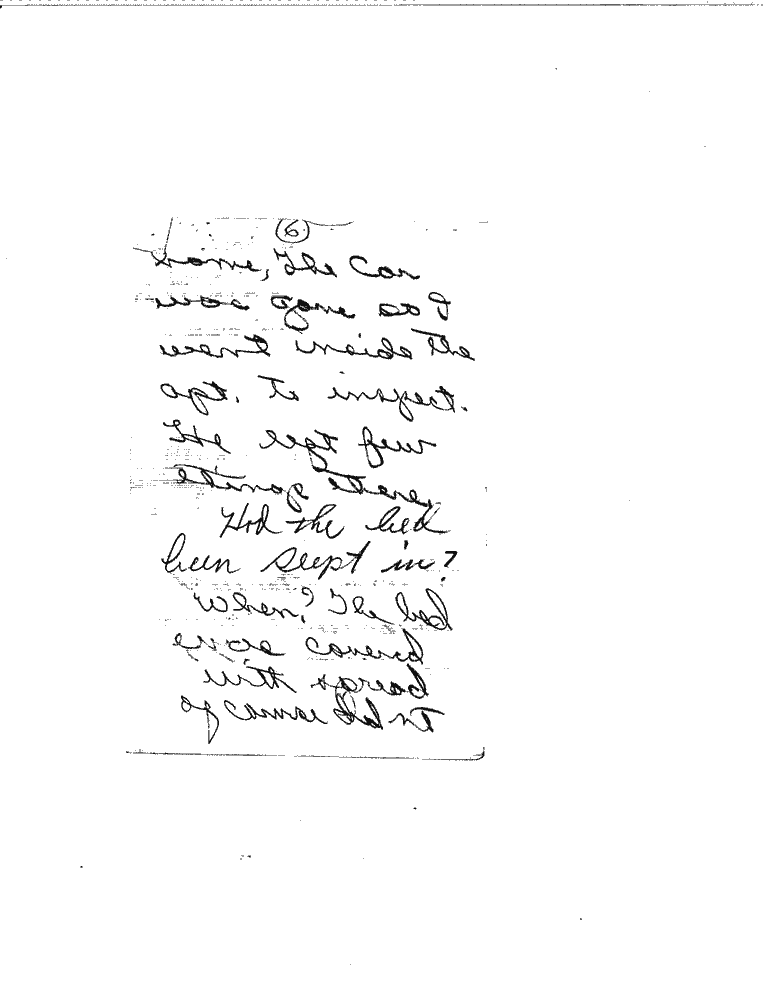 6
home, The Car
was gone so I
went inside the
apt. to inspect.
He left few
things there.
Had the bed
been slept in?
When? The bed
was covered
with spread
of course did nt